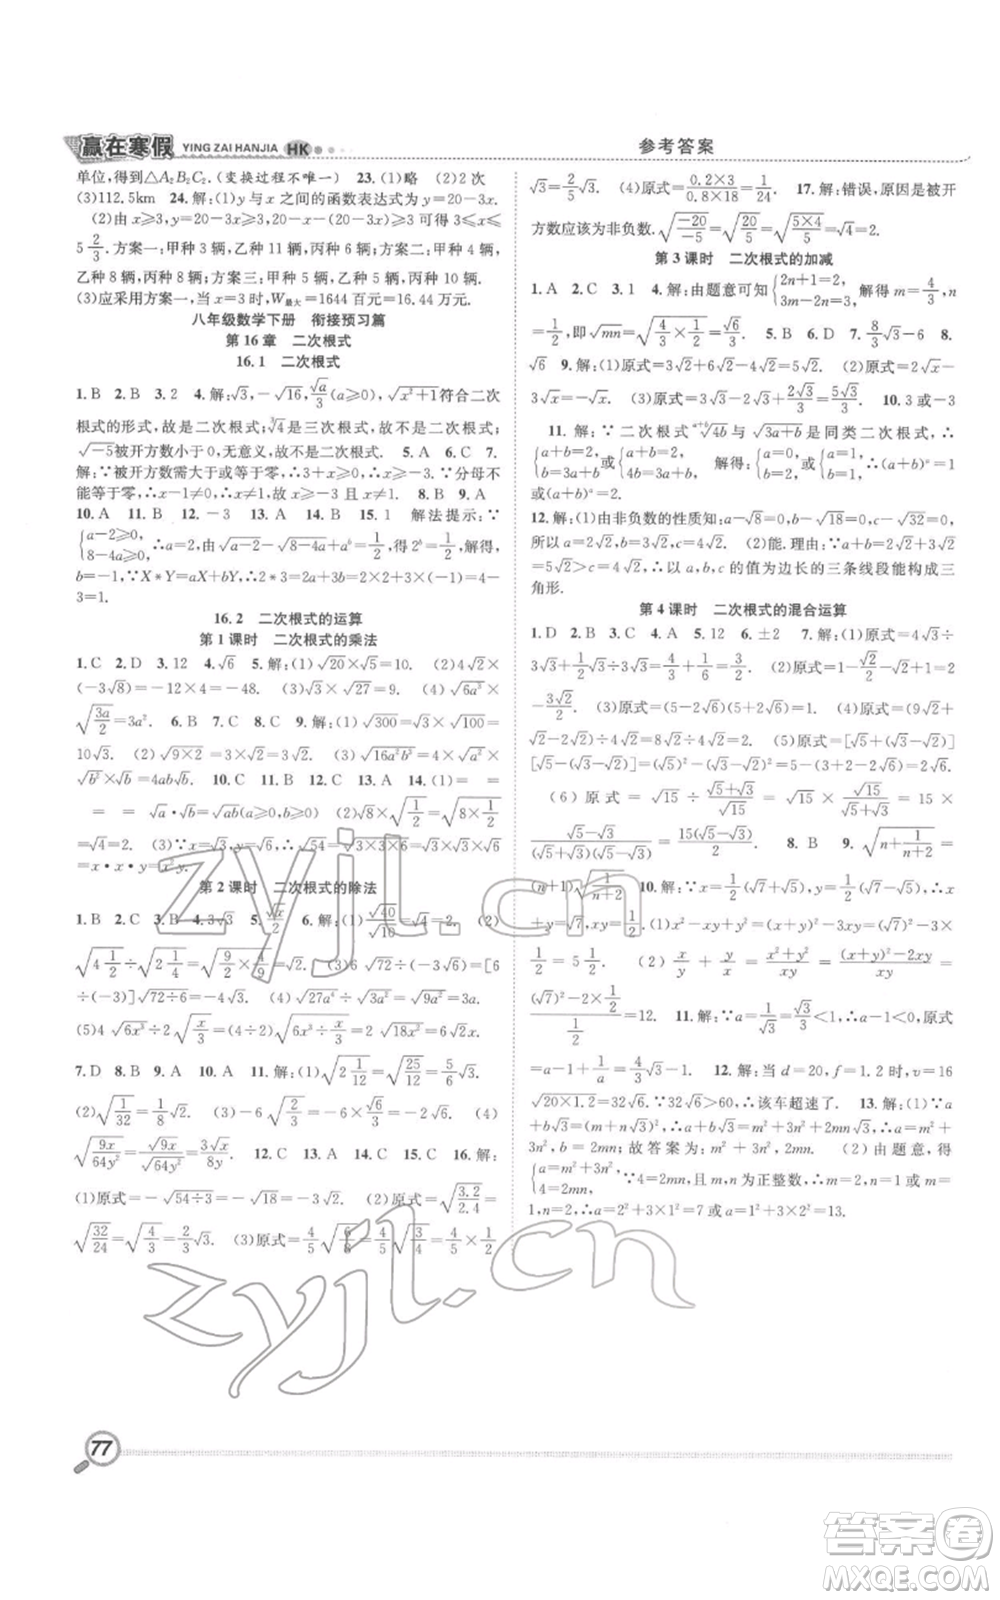 赢在寒假 YING ZAI HANJIA HK
参考答案
单位,得到△A₂B₂C₂.(变换过程不唯一) 23.(1)略 (2)2次
(3)112.5km 24.解:(1)y与x之间的函数表达式为y=20-3x.
(2)由x≥3,y=20-3x≥3,即20-3x≥3可得3≤x≤
5 2/3.方案一:甲种3辆,乙种11辆,丙种6辆;方案二:甲种4辆,
乙种8辆,丙种8辆;方案三:甲种5辆,乙种5辆,丙种10辆.
(3)应采用方案一,当x=3时,W最大=1644百元=16.44万元.
八年级数学下册 衔接预习篇
第16章 二次根式
16.1 二次根式
1.B 2.B 3.2 4.解:√3,-√16,√a/3(a≥0),√(x²+1)符合二次
根式的形式,故是二次根式;∛4是三次根式,故不是二次根式;
√-5被开方数小于0,无意义,故不是二次根式. 5.A 6.C 7.
解:∵被开方数需大于或等于零,∴3+x≥0,∴x≥-3.∵分母不
能等于零,∴x-1≠0,∴x≠1.故x≥-3且x≠1. 8.B 9.A
10.A 11.B 12.-3 13.A 14.B 15.1 解法提示:∵
{a-2≥0, 8-4a≥0, ∴a=2,由√(a-2)-√(8-4a)+aᵇ=1/2,得2ᵇ=1/2,解得,
b=-1,∵X*Y=(X+Y)²-(X-Y),∴a*b=(2-1)²-(2+1)=1-3+3=
1.
16.2 二次根式的运算
第1课时 二次根式的乘法
1.C 2.D 3.12 4.√6 5.解:(1)√20×√5=10. (2)√32
×(-3√8)=-12×4=-48. (3)√3×√27=9. (4)√(6a³)×
√(3a/2)=3a². 6.B 7.C 8.C 9.解:(1)√300=√3×√100=
10√3. (2)√(9×2)=3×√2=3√2. (3)√(16a²b³)=4×√a²×
√b²×√b=4ab√b. 10.C 11.D 12.D 13.A 14.(1)= =
= = √a·√b=√ab(a≥0,b≥0) (2)√8×√(1/2)=√(8×1/2)
=√4=2. (3)∵x=√3,y=√4,∴√108=√(4×3×3×3)=√4×√3×√3×√3
=x·x·x·y=x³y.
第2课时 二次根式的除法
1.B 2.C 3.D 4.3√3 5.√x/2 6.解:(1)√40/√10=√4=2. (2)
√(4 1/2)÷√(2 1/4)=√(9/2)÷√(9/4)=√(9/2×4/9)=√2. (3)6√72÷(-√6)=[6
÷(-1)]√(72÷6)=-6√12=-12√3. (4)√(27a⁴)÷√(3a²)=√(9a²)=3a.
(5)4√(6x³)÷2√(x/3)=2√(6x³÷x/3)=2√(18x²)=6√2x.
7.D 8.B 9.A 10.A 11.解:(1)√(2 1/12)=√(25/12)=5/√12=5/6√3.
(2)√(1/32)=1/8√2. (3)-√(2 2/3)=-2/3√6. (4)
√(9x/64y²)=√9x/√64y²=3√x/8y. 12.C 13.C 14.C 15.C 16.解:
(1)原式=-√(54÷3)=-√18=-3√2. (2)原式=√(3.2/2.4)=
√(32/24)=√(4/3)=2/3√3. (3)原式=4/5√(6/8)=4/5√(3/4)=4/5×1/2
√3=2/5√3. (4)原式=(0.2×3)/(0.8×18)=1/24. 17.解:错误,原因是被开
方数应该为非负数.√(-20/-5)=√(20/5)=√((5×4)/5)=√4=2.
第3课时 二次根式的加减
1.A 2.C 3.1 4.解:由题意可知{2n+1=2, 3m-2n=3, 解得m=4/3,n
=1/2,即√mn=√(4/3×1/2)=√6/3. 5.B 6.D 7.8/3√3-6 8.
√6 9.解:(1)原式=3√2+6√2-4√2=5√2. (2)原式=2√x-
3√x=-√x. (3)原式=3√2-2√2+2√3/3=√2+5√3/3. 10.3或-3
11.解:∵二次根式ᵃ⁺ᵇ√4b与√(3a+b)是同类二次根式,∴
{a+b=2, 4b=3a+b 或 {a+b=2, b=3a+b, 解得:{a=1, b=1 或 {a=0, b=2, ∴(a+b)ᵃ=2
或(a+b)ᵃ=1.
12.解:(1)由非负数的性质知:a-√8=0,b-5=0,c-√32=0,
所以a=2√2,b=5,c=4√2. (2)能.理由:∵a+b=2√2+5
>4√2,∴a+b>c,∴以a,b,c的值为边长的三条线段能构成三
角形.
第4课时 二次根式的混合运算
1.D 2.D 3.C 4.A 5.12 6.±2 7.解:(1)原式=4√3÷
3√3=4/3. (2)原式=1-√2/2-√2=1
-3√2/2. (3)原式=(5-2√6)(5+2√6)=1. (4)原式=(10√2
-√2)
(5)原式=[√5+(√3-√2)]
[√5-(√3-√2)]=5-(√3-√2)²=5-3-2+2√6=2√6.
(6)原式=√15÷(√5+√3)/√15=√15×√15/(√5+√3)=15×
(√5-√3)/((√5+√3)(√5-√3))=15(√5-√3)/2. 8.B 9.√(n+1/(n+2))=
(n+1)√(1/(n+2)) 10.解:∵x=1/2(√7+√5),y=1/2(√7-√5),∴x
+y=√7,xy=1/2. (1)x²-xy+y²=(x+y)²-3xy=(√7)²-3×
1/2=5 1/2. (2)x/y+y/x=(x²+y²)/xy=((x+y)²-2xy)/xy=
((√7)²-2×1/2)/(1/2)=12. 11.解:∵a=1/√3=√3/3<1,∴a-1<0,原式
12.解:当d=20,f=1.2时,v=16
√(20×1.2)=32√6.∵32√6>60,∴该车超速了. 13.解:(1)∵a
+b√3=(m+n√3)²,∴a+b√3=m²+3n²+2mn√3,∴a=m²+
3n²,b=2mn;故答案为m²+3n²,2mn. (2)由题意,得
{a=m²+3n², 4=2mn, ∵4=2mn,且m,n为正整数,∴m=2,n=1或m=
1,n=2,∴a=2²+3×1²=7或a=1²+3×2²=13.
77
zyjl.cn
zyjl.cn
答案卷
MXQE.COM